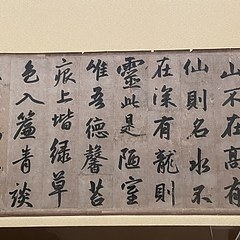 山不在高有
仙則名水不
在深有龍則
靈此是陋室
惟吾德馨苔
痕上堦綠草
色入簾青談